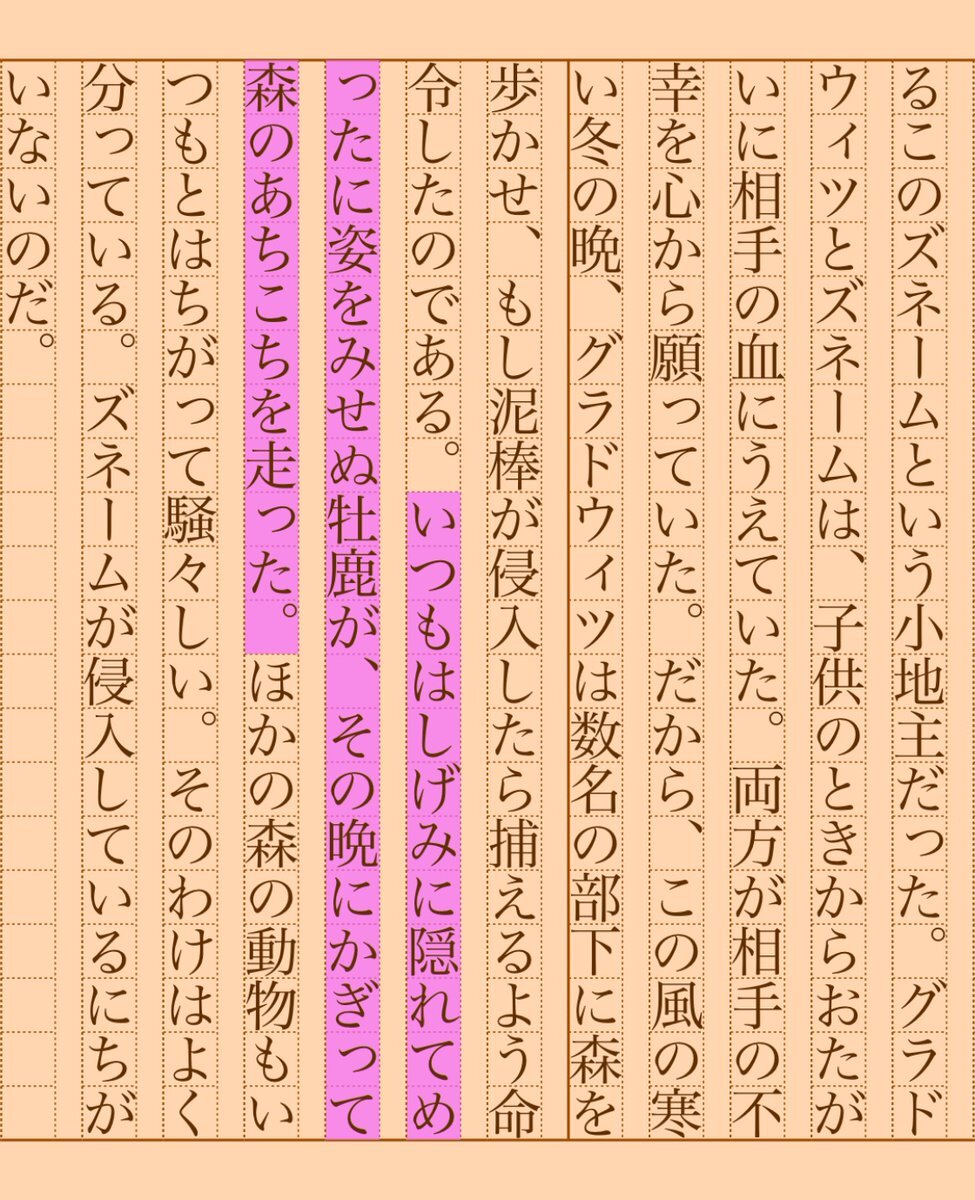 るこのズネームという小地主だった。グラド
ウィツとズネームは、子供のときからおたが
いに相手の血にうえていた。両方が相手の不
幸を心から願っていた。だから、この風の寒
い冬の晩、グラドウィツは数名の部下に森を
歩かせ、もし泥棒が侵入したら捕えるよう命
令したのである。いつもはしげみに隠れてめ
ったに姿をみせぬ牡鹿が、その晩にかぎって
森のあちこちを走った。ほかの森の動物もい
つもとはちがって騒々しい。そのわけはよく
分っている。ズネームが侵入しているにちが
いないのだ。